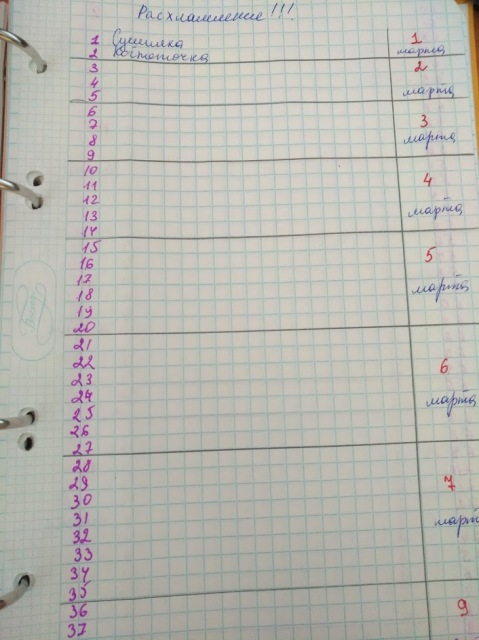 Расхламление!!!
1 Сушилка 1
2 Когтеточка марта
3 2
4
5 марта
6
7 3
8 марта
9
10
11 4
12
13 марта
14
15 5
16
17 марта
18
19
20
21
22 6
23
24 марта
25
26
27
28
29 7
30
31 март
32
33
34
35
36 9
37